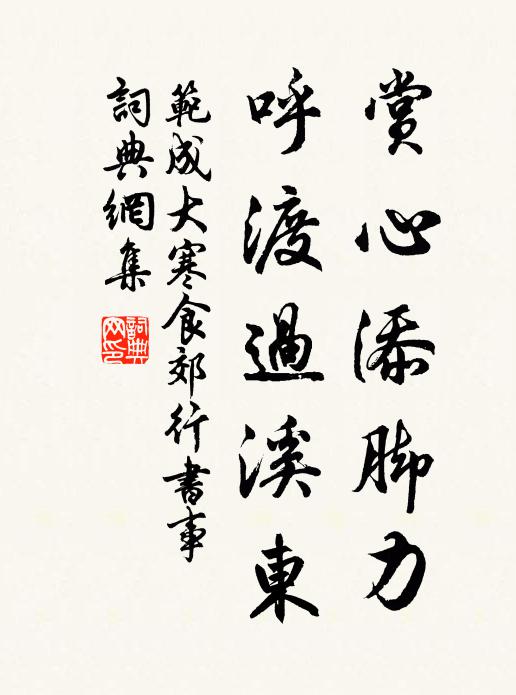 賞心添脚力
呼渡過溪東
範成大寒食郊行書事
詞典網集
詞典網印